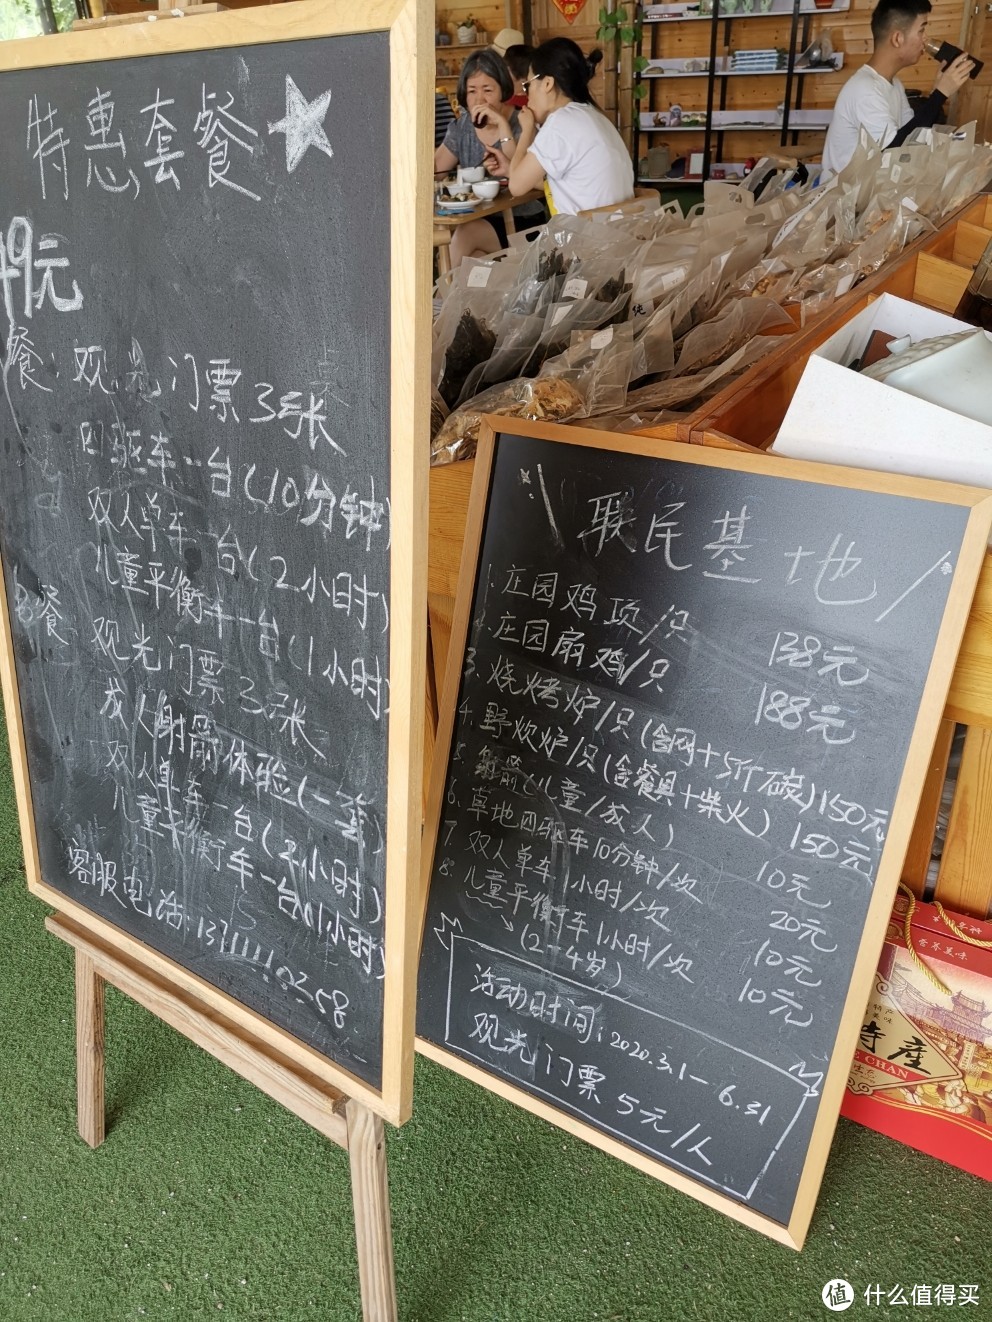 特惠套餐
49元
餐: 观光门票3张
四驱车一台(10分钟)
双人单车一台(2小时)
儿童平衡车一台(1小时)
餐 观光门票3张
成人射箭体验(一筐)
双人单车一台(2小时)
儿童平衡车一台(1小时)
客服电话:
联民基地
1. 庄园鸡项/只 138元
2. 庄园扇鸡/只 188元
3. 烧烤炉/只(含网+5斤碳) 150元
4. 野炊炉/只(含餐具+柴火) 150元
5. 射箭(儿童/成人) 10元
6. 草地四驱车10分钟/次 20元
7. 双人单车1小时/次 10元
8. 儿童平衡车1小时/次 10元
(2-4岁)
活动时间: 2020.3.1-6.31
观光门票5元/人
特產
CHAN
值 什么值得买